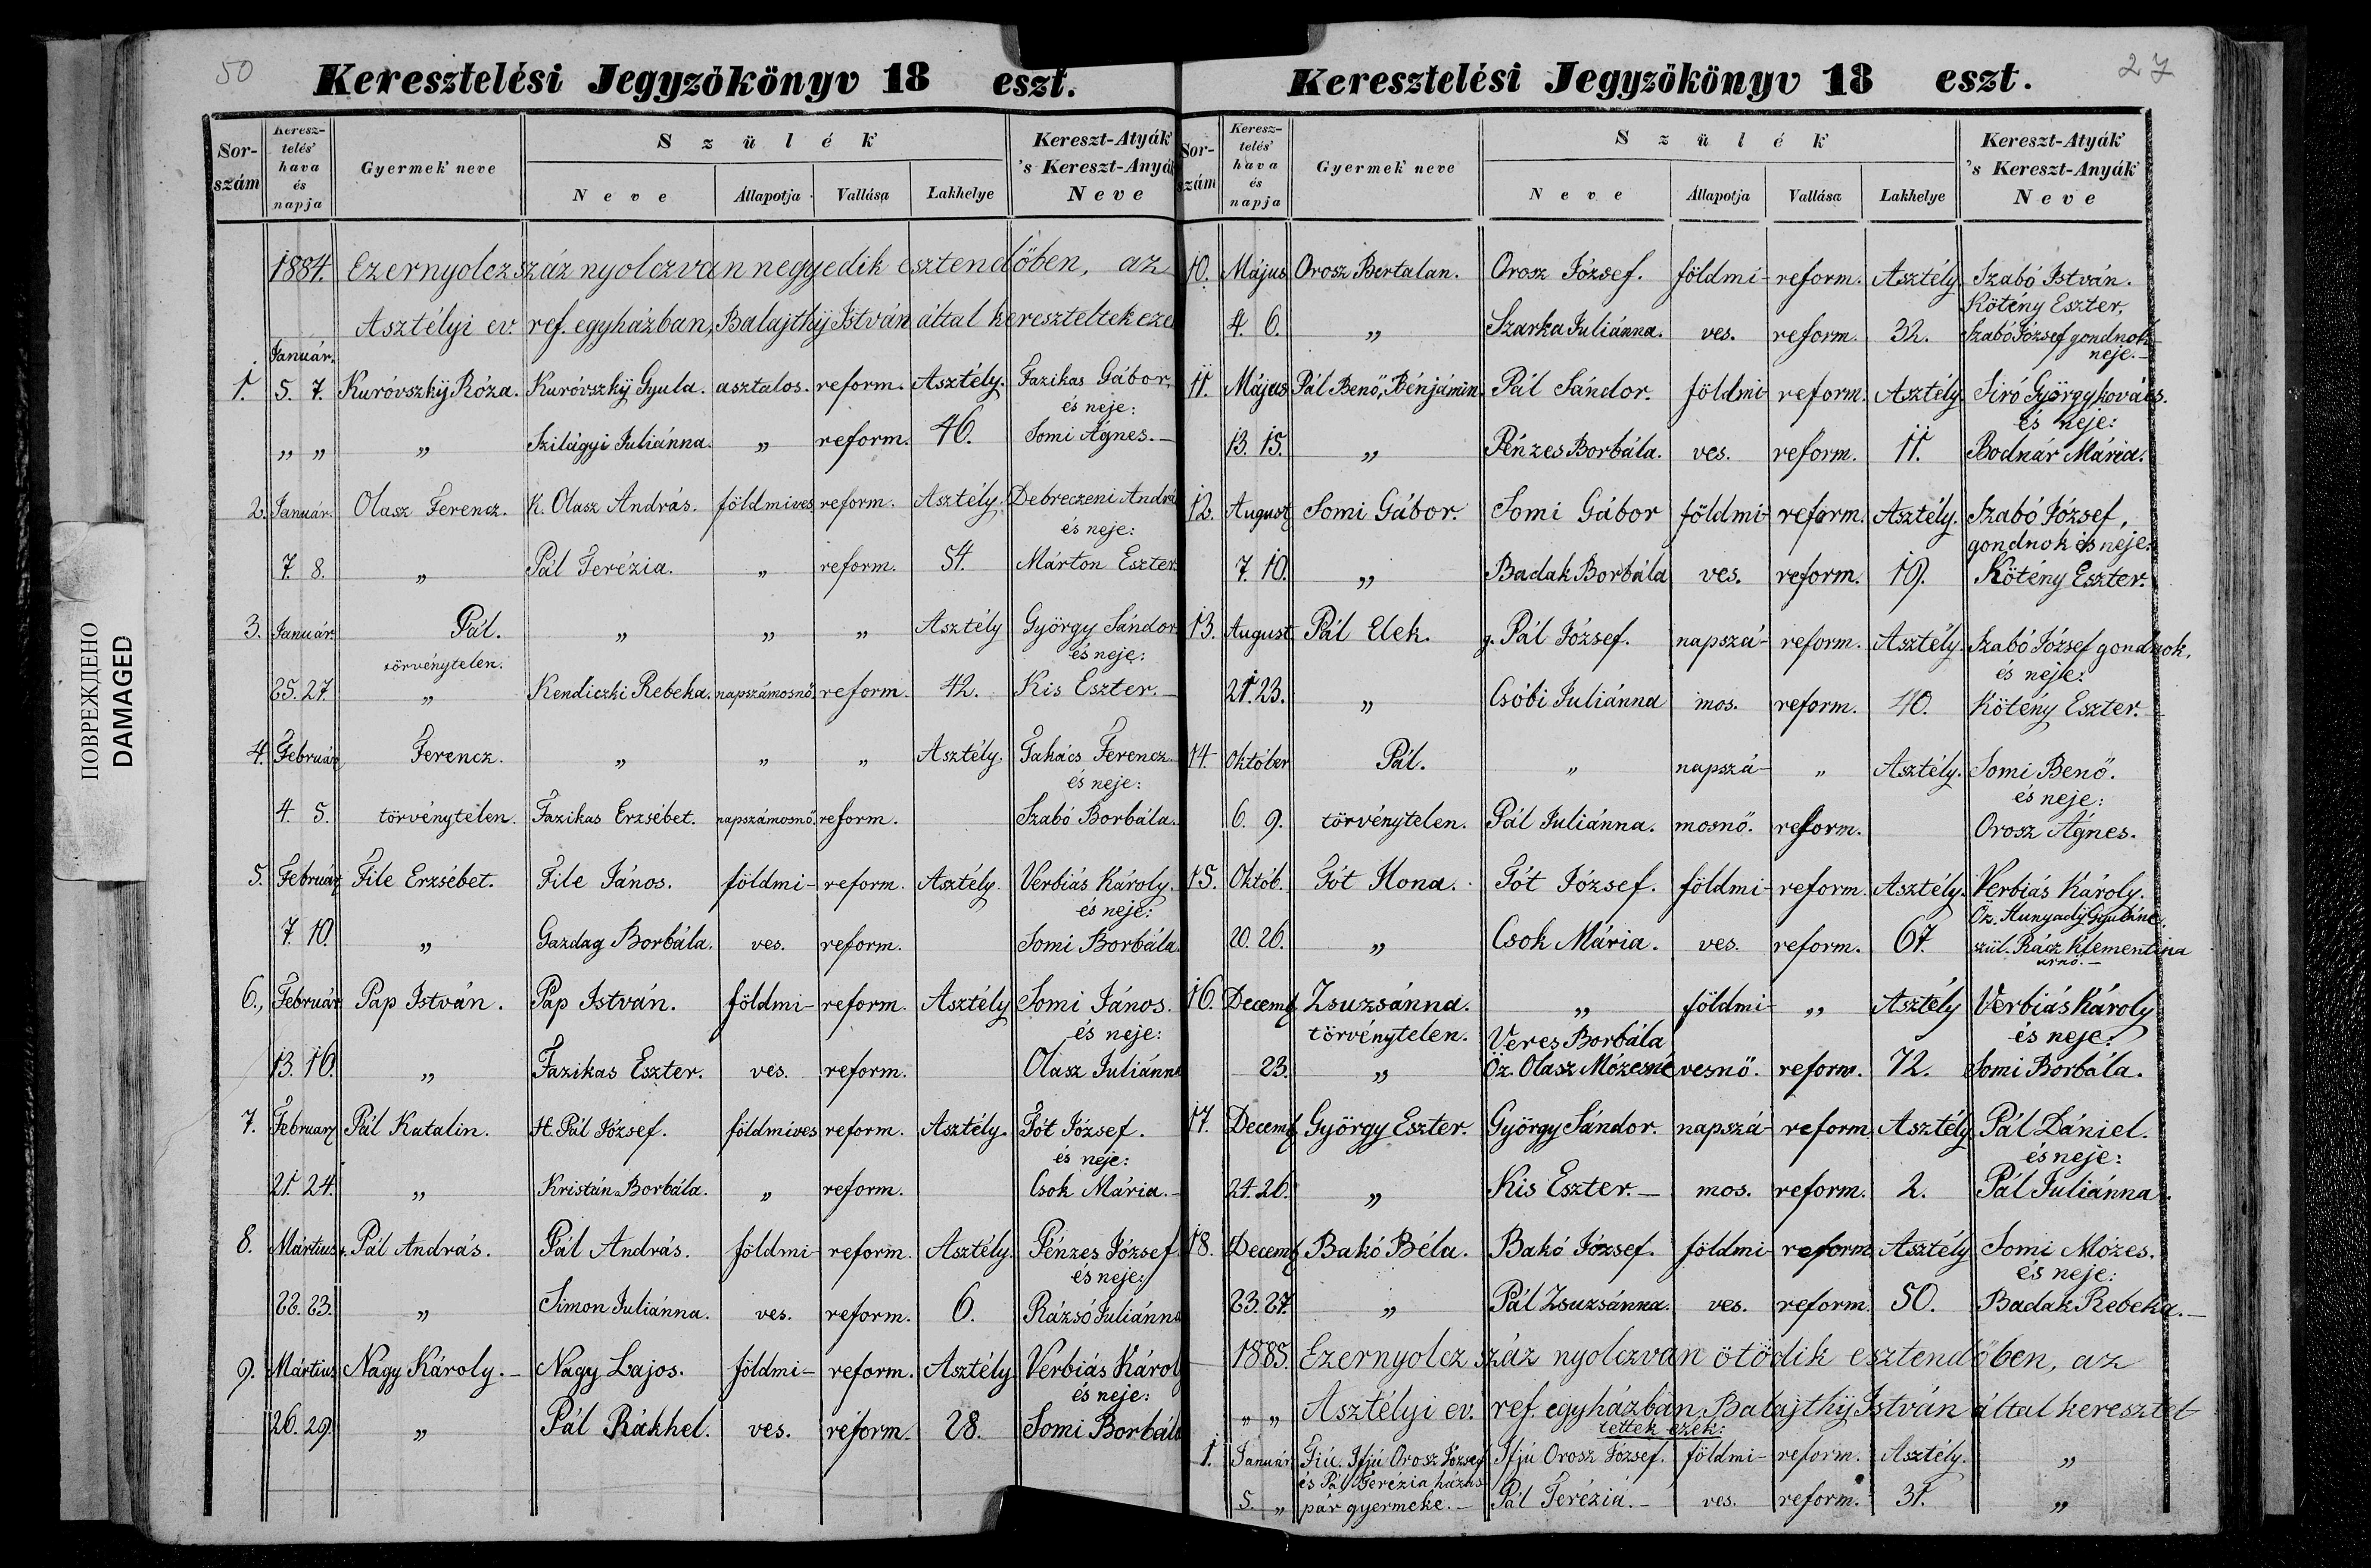 50
Keresztelési Jegyzőkönyv 18 eszt.
Sor-szám Keresz-telés' hava és napja Gyermek' neve Szülék' Neve Állapotja Vallása Lakhelye Kereszt-Atyák 's Kereszt-Anyák Neve
1884. Ezernyolczszáz nyolczvan negyedik esztendőben, az
Asztélyi ev. ref. egyházban, Balajthÿ István által kereszteltek eze
Január.
1. 5. 7. Kuróvszkÿ Róza. Kuróvszkÿ Gyula. asztalos. reform. Asztély. Fazikas Gábor,
és neje:
„ „ „ Szilágyi Juliánna. „ reform. 46. Somi Ágnes.—
2. Január. Olasz Ferencz. K. Olasz András. földmives reform. Asztély. Debreczeni Andrá
és neje:
7. 8. „ Pál Terézia. „ reform. 54. Márton Eszter.
3. Január Pál. „ „ „ Asztély György Sándor.
törvénytelen. és neje:
25. 27. „ Kendiczki Rebeka. napszámosnő. reform. 42. Kis Eszter.—
4. Február Ferencz. „ „ „ Asztély. Takács Ferencz.
és neje:
4. 5. törvénytelen. Fazikas Erzsébet. napszámosnő. reform. Szabó Borbála.
5. Február File Erzsébet. File János. földmi- reform. Asztély. Verbiás Károly.
és neje:
7. 10. „ Gazdag Borbála. ves. reform. Somi Borbála.
6., Február Pap István. Pap István. földmi- reform. Asztély Somi János.
és neje:
13. 16. „ Fazikas Eszter. ves. reform. Olasz Juliánna
7. Február Pál Katalin. H. Pál József. földmives reform. Asztély. Tót József.
és neje:
21. 24. „ Kristán Borbála. „ reform. Csok Mária.—
8. Mártius. Pál András. Pál András. földmi- reform. Asztély. Pénzes József
és neje:
22. 23. „ Simon Juliánna. ves. reform. 6. Rázsó Juliánna
9. Mártius Nagy Károly.— Nagy Lajos. földmi- reform. Asztély. Verbiás Károly
és neje:
26. 29. „ Pál Rákhel. ves. reform. 28. Somi Borbála
27
Keresztelési Jegyzőkönyv 18 eszt.
Sor-szám Keresz-telés' hava és napja Gyermek' neve Szülék' Neve Állapotja Vallása Lakhelye Kereszt-Atyák 's Kereszt-Anyák' Neve
10. Május Orosz Bertalan. Orosz József. földmi- reform. Asztély. Szabó István.
Kötény Eszter,
4. 6. „ Szarka Juliánna. ves. reform. 32. Szabó József gondnok
neje.—
11. Május Pál Benő, Bénjámin. Pál Sándor. földmi- reform. Asztély. Siró György kovács.
és neje:
13. 15. „ Pénzes Borbála. ves. reform. 11. Bodnár Mária.
12. August Somi Gábor. Somi Gábor földmi- reform. Asztély. Szabó József,
gondnok és neje:
7. 10. „ Badak Borbála ves. reform. 19. Kötény Eszter.
13. August Pál Elek. g. Pál József. napszá- reform. Asztély. Szabó József gondnok,
és neje:
21. 23. „ Csóbi Juliánna mos. reform. 40. Kötény Eszter.
14. Október Pál. „ napszá- „ Asztély. Somi Benő.
és neje:
6. 9. törvénytelen. Pál Juliánna. mosnő. reform. Orosz Ágnes.
15. Októb. Tót Ilona. Tót József. földmi- reform. Asztély. Verbiás Károly.
Öz. Hunyadÿ Gyuláné,
20. 26. „ Csok Mária. ves. reform. 67. szül. Rácz Klementina
urnő.—
16. Decemb Zsuzsánna. „ földmi- „ Asztély Verbiás Károly
törvénytelen. Veres Borbála és neje:
23. „ Öz. Olasz Mózesné vesnő. reform. 72. Somi Borbála.
17. Decemb György Eszter. György Sándor. napszá- reform Asztély Pál Dániel.
és neje:
24. 26. „ Kis Eszter.— mos. reform. 2. Pál Juliánna.
18. Decemb Bakó Béla. Bakó József. földmi- reform Asztély Somi Mózes.
és neje:
23. 27. „ Pál Zsuzsánna. ves. reform. 50. Badak Rebeka.—
1885. Ezernyolcz száz nyolczvan ötödik esztendőben, az
„ „ Asztélyi ev. ref. egyházban, Balajthÿ István által keresztel-
tettek ezek:
1. Január Fiú. Ifjú Orosz József Ifjú Orosz József. földmi- reform. Asztély. „
és Pál Terézia házas
5. „ pár gyermeke.— Pál Terézia.— ves. reform. 31. „
ПОВРЕЖДЕНО
DAMAGED